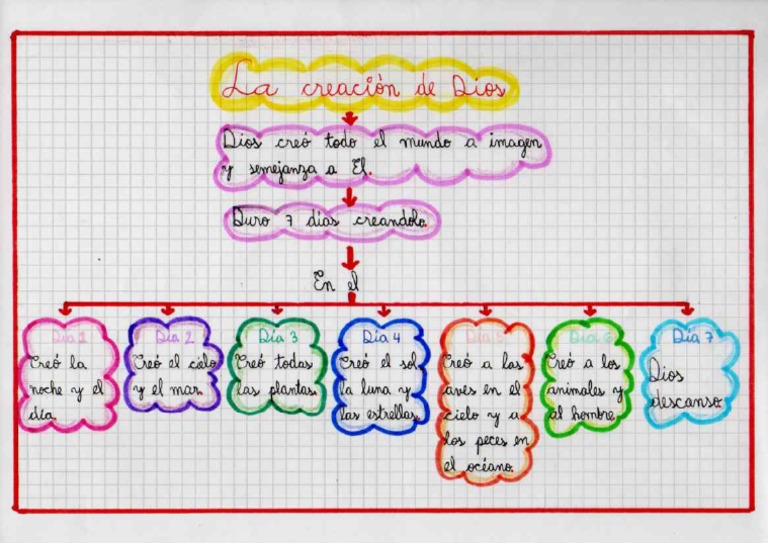 La creación de Dios
Dios creó todo el mundo a imagen
y semejanza a Él.
Duro 7 días creandolo.
En el
Día 1
Creó la
noche y el
día.
Día 2
Creó el cielo
y el mar.
Día 3
Creó todas
las plantas.
Día 4
Creó el sol,
la luna y
las estrellas.
Día 5
Creó a las
aves en el
cielo y a
los peces en
el océano.
Día 6
Creó a los
animales y
al hombre.
Día 7
Dios
descanso.